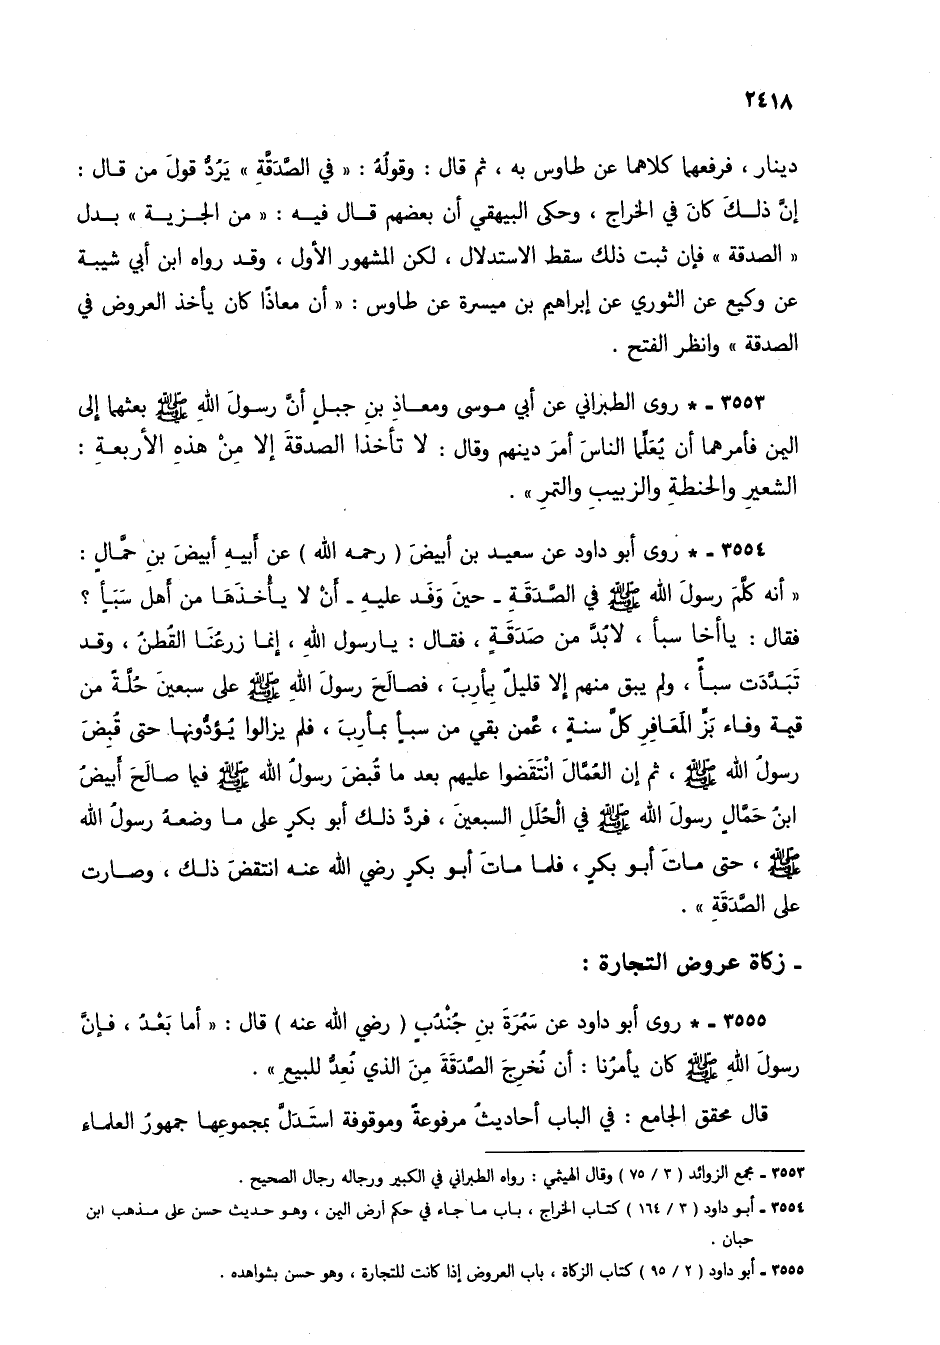 ٢٤١٨
دينار ، فرفعها كلاهما عن طاوس به ، ثم قال : وقولُهُ : « في الصَّدَقَّةِ » يَرُدُّ قولَ من قـال :
إنَّ ذلـكَ كانَ في الخراج ، وحكى البيهقي أن بعضهم قـال فيـه : « من الجـزيـة » بـدل
« الصدقة » فإن ثبت ذلك سقط الاستدلال ، لكن المشهور الأول ، وقـد رواه ابن أبي شيبـة
عن وكيع عن الثوري عن إبراهيم بن ميسرة عن طاوس : « أن معاذًا كان يأخذ العروض في
الصدقة » وانظر الفتح .
٣٥٥٣ ـ * روى الطبراني عن أبي مـوسى ومعـاذِ بنِ جبـلٍ أنَّ رسـولَ اللهِ ﷺ بعثهما إلى
اليمن فأمرهما أن يُعَلِّما الناسَ أمرَ دينهم وقال : لا تـأخذا الصدقةَ إلا مِنْ هذهِ الأربعـةِ :
الشعيرِ والحنطةِ والزبيبِ والتمرِ » .
٣٥٥٤ ـ * روى أبو داود عن سعيـد بن أبيضَ ( رحمـه الله ) عن أبيـهِ أبيضَ بنِ حَمَّـالٍ :
« أنه كلَّمَ رسولَ الله ﷺ في الصَّدَقَـةِ ـ حينَ وَفَـد عليـهِ ـ أنْ لا يـأخـذَهَـا من أهل سَبَـأَ ؟
فقال : ياأخا سبأ ، لابُدَّ من صَدَقَـةٍ ، فقـال : يـارسول اللهِ ، إنمـا زرعْنَـا القُطنَ ، وقـد
تَبَـدَّدَت سبـأٌ ، ولم يبق منهم إلا قليلٌ بمأربَ ، فصـالَحَ رسولَ اللهِ ﷺ على سبعينَ حُلَّـةً من
قيمة وفـاء بَزِّ المَعَـافِرِ كلَّ سنـةٍ ، عَّمن بقي من سبـأٍ بمـأربَ ، فلم يزالوا يُـؤَدُّونهـا حتى قُبِضَ
رسولُ الله ﷺ ، ثم إن العُمَّالَ انْتَقَضوا عليهم بعد ما قُبضَ رسولُ الله ﷺ فيما صـالَحَ أبيضُ
ابنُ حَمَّالٍ رسولَ الله ﷺ في الْحُلَلِ السبعينَ ، فردَّ ذلـك أبو بكرٍ على مـا وضعـهُ رسولُ الله
ﷺ ، حتى مـاتَ أبـو بكرٍ ، فلمـا مـاتَ أبـو بكرٍ رضي الله عنـه انتقضَ ذلـك ، وصـارت
على الصَّدَقَةِ » .
ـ زكاة عروض التجارة :
٣٥٥٥ ـ * روى أبو داود عن سَمُرَةَ بنِ جُنْدُبٍ ( رضي الله عنه ) قال : « أما بَعْـدُ ، فـإنَّ
رسولَ اللهِ ﷺ كان يأمرُنا : أن نُخرِجَ الصَّدَقَةَ مِنَ الذي نُعِدُّ للبيعِ » .
قال محقق الجامع : في الباب أحاديثُ مرفوعةٌ وموقوفة استَدلَّ بمجموعِهـا جمهورُ العلمـاء
٣٥٥٣ ـ مجمع الزوائد ( ٣ / ٧٥ ) وقال الهيثمي : رواه الطبراني في الكبير ورجاله رجال الصحيح .
٣٥٥٤ ـ أبـو داود ( ٣ / ١٦٤ ) كتـاب الخراج ، بـاب مـا جـاء في حكم أرض اليمن ، وهـو حـديث حسن على مـذهب ابن
حبان .
٣٥٥٥ ـ أبو داود ( ٢ / ٩٥ ) كتاب الزكاة ، باب العروض إذا كانت للتجارة ، وهو حسن بشواهده .